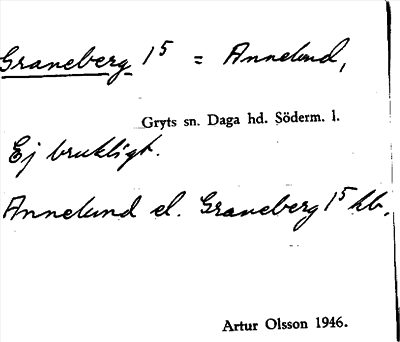 Graneberg 1⁵ = Annelund,
Gryts sn. Daga hd. Söderm. l.
Ej brukligt.
Annelund el. Graneberg 1⁵ hb.
Artur Olsson 1946.